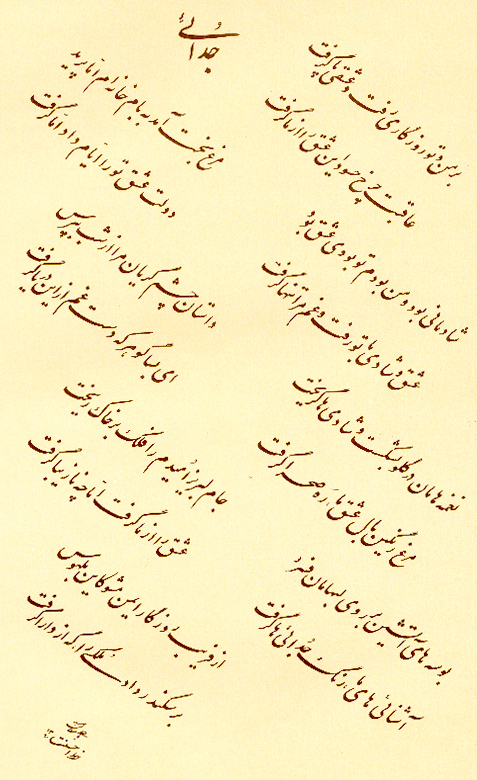 جدائی
بر من و تو روزگاری رفت و عشقی پا گرفت
عاقبت چرخ حسود این عشق را از ما گرفت
شادمانی بود و من بودم تو بودی عشق بود
عشق و شادی با تو رفت و غم مرا تنها گرفت
نغمه هامان در گلو بشکست و شادی ها گریخت
مرغ رنگین بال عشق ما ره صحرا گرفت
بوسه های آتشین بر روی لبهامان فسرد
آشنائی های ما رنگ جدائی ها گرفت
مرغ بخت آمد به بام خانه ام اما پرید
دولت عشق تو را ایام داد اما گرفت
داستان چشم گریان مرا از شب بپرس
ای بسا گوهر که دست غم از این دریا گرفت
جام لبریز امیدم را فلک بر خاک ریخت
عشق را از ما گرفت اما چه نازیبا گرفت
از فریب روزگار ایمن مشو کاین بلهوس
بر سکندر داد ملکی را که از دارا گرفت